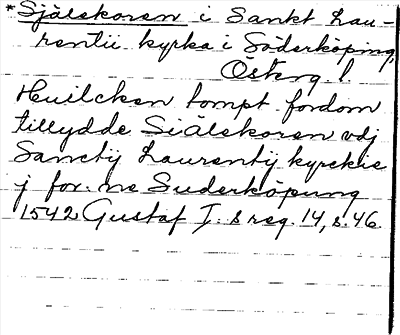 *Själskoren i Sankt Lau-
rentii kyrka i Söderköping,
Österg. l.
Huilcken tompt fordom
tillydde Siälskoren vdj
Sanctij Laurentij kyrckie
j for:ne Suderköpung
1542 Gustaf I:s reg. 14, s. 46.